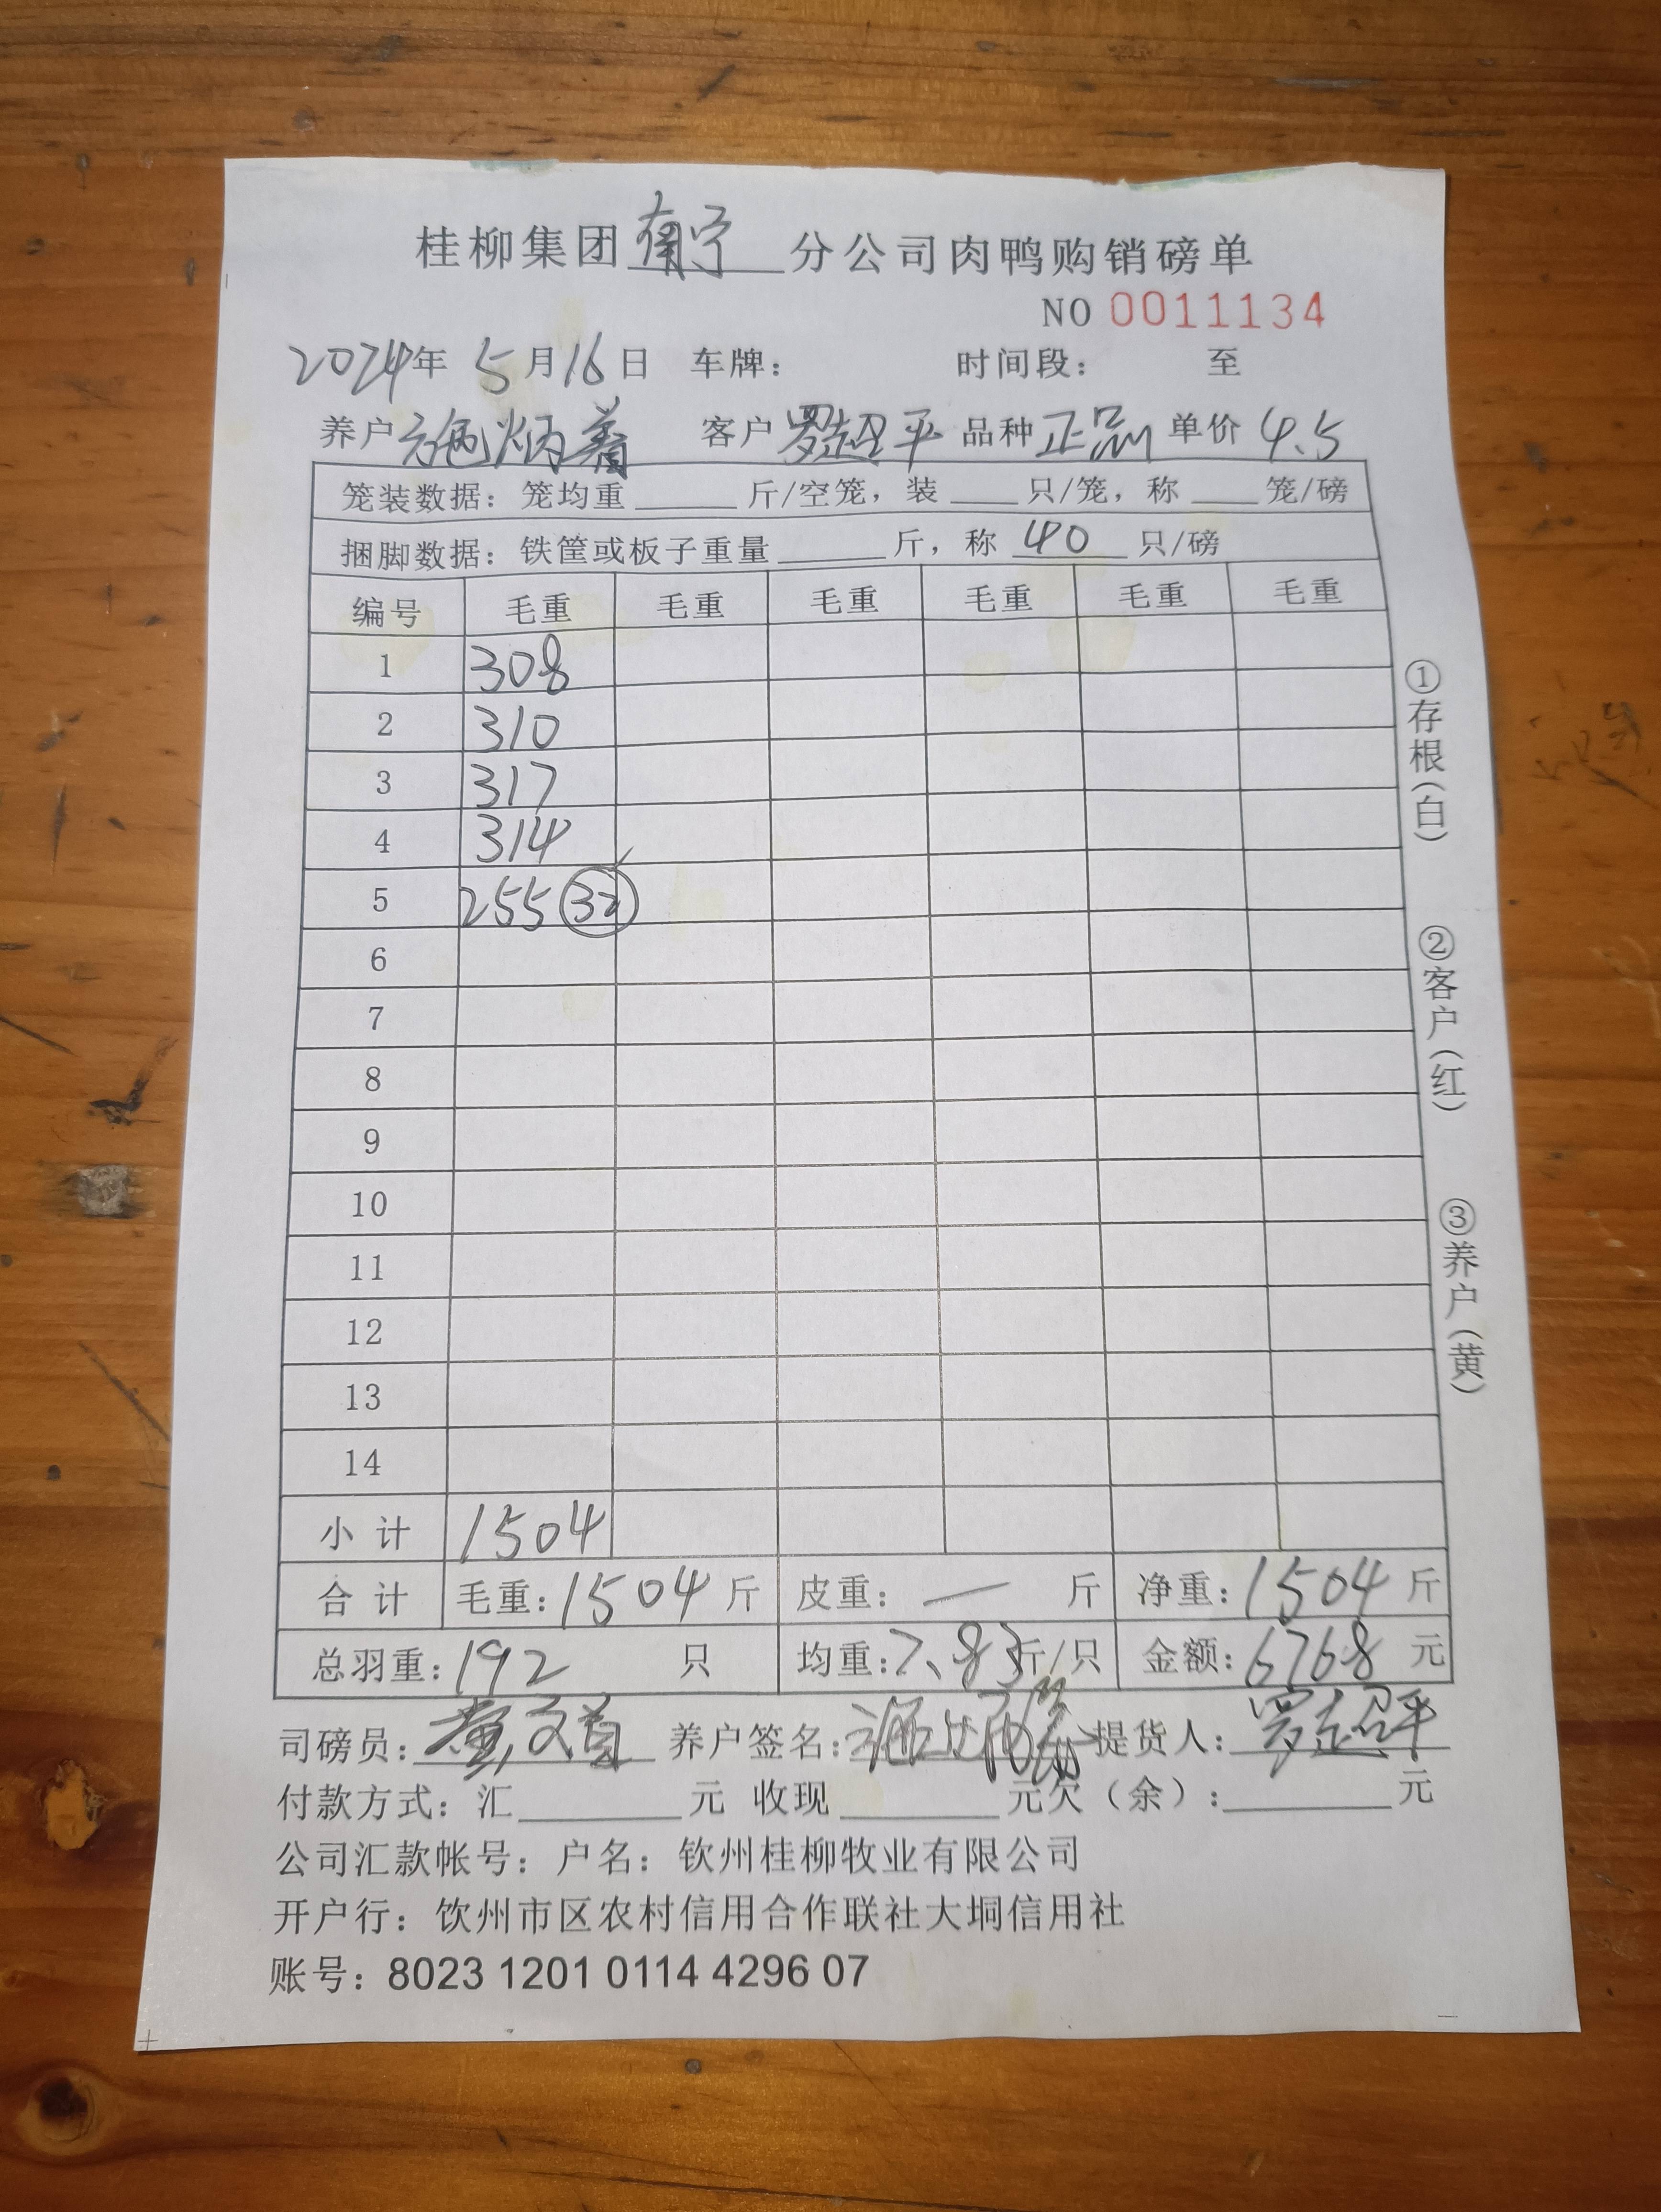 桂柳集团南宁分公司肉鸭购销磅单
NO 0011134
2024年 5月16日 车牌： 时间段： 至
养户 施炳着 客户 罗超平 品种 正品 单价 4.5
笼装数据：笼均重____斤/空笼，装____只/笼，称____笼/磅
捆脚数据：铁筐或板子重量____斤，称 40 只/磅
编号 毛重 毛重 毛重 毛重 毛重 毛重
1 308
2 310
3 317
4 314
5 255 32
6
7
8
9
10
11
12
13
14
小计 1504
合计 毛重：1504斤 皮重：—斤 净重：1504斤
总羽重：192 只 均重：7.83斤/只 金额：6768元
司磅员： 养户签名： 提货人：罗超平
付款方式：汇____元 收现____元欠（余）：____元
公司汇款帐号：户名：钦州桂柳牧业有限公司
开户行：饮州市区农村信用合作联社大垌信用社
账号：8023 1201 0114 4296 07
①存根（白）
②客户（红）
③养户（黄）